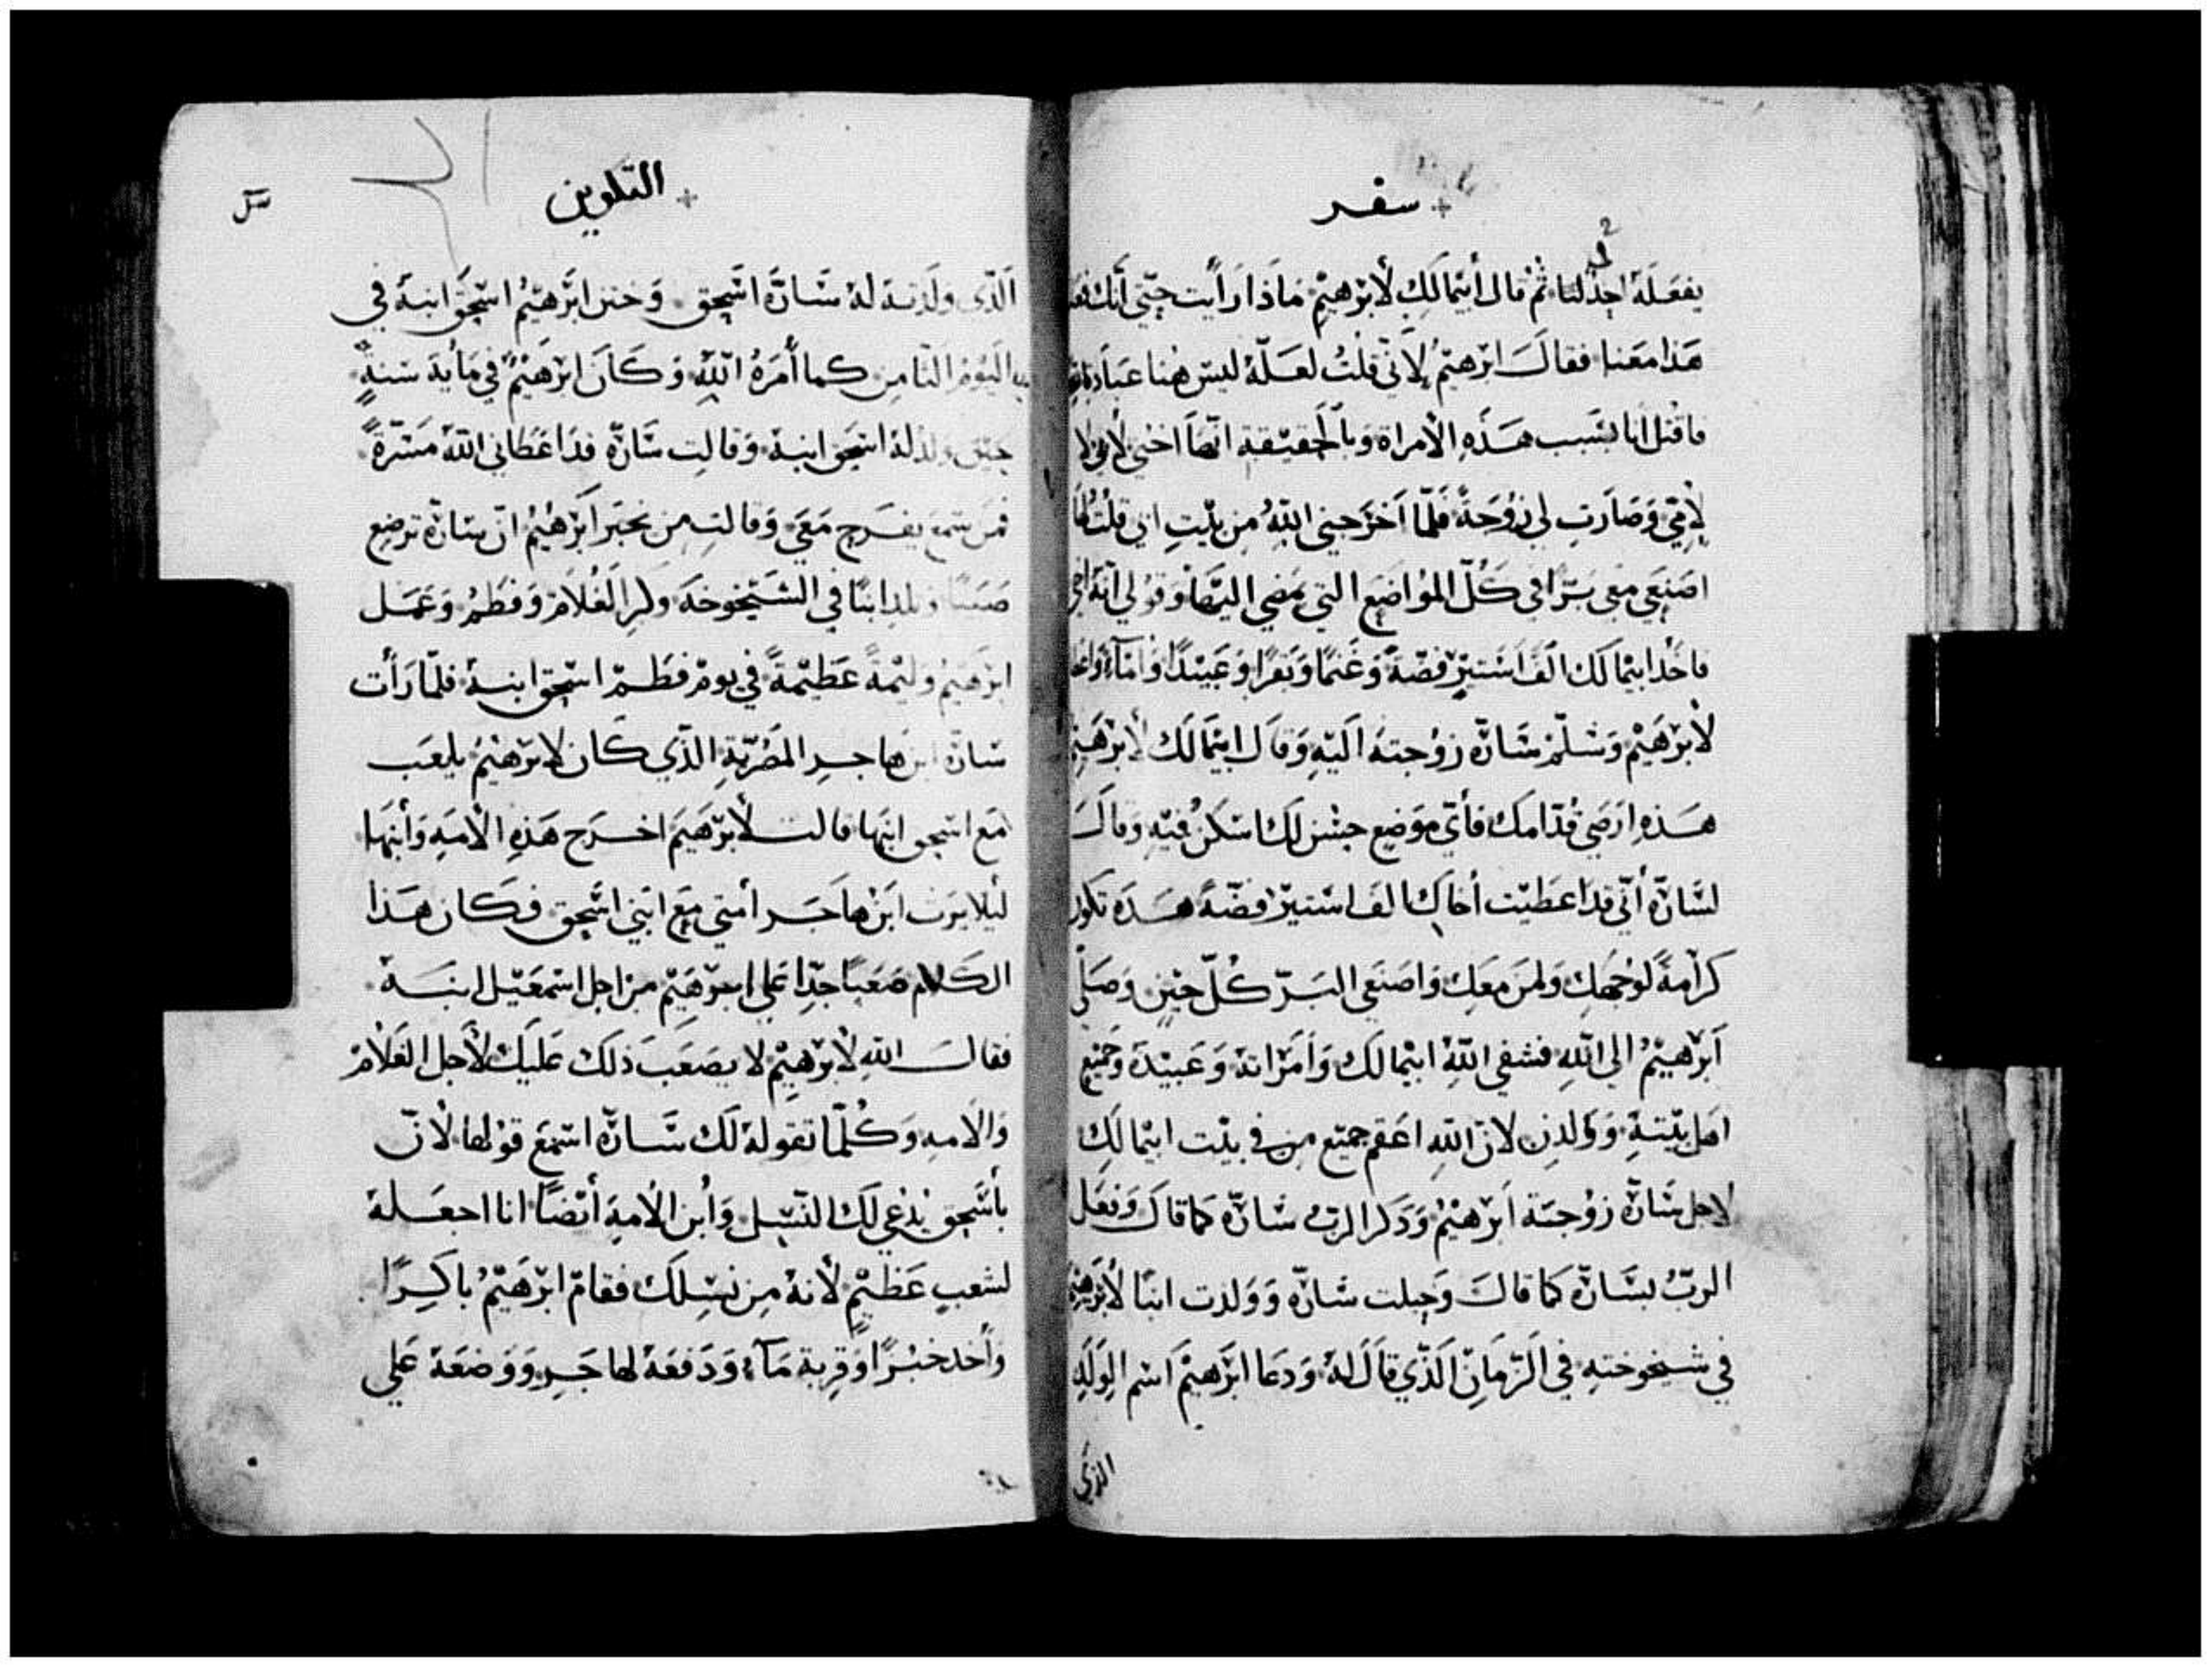 سفر
يفعله احد لنا ثم قال أبيمالك لأبرهيم ماذا رأيت حتي أنك
هذا معنا فقال ابرهيم لأني قلت لعله ليس هنا عبادة
فاقتل انا بسبب هذه الأمراة وبالحقيقة انها اختي لأبي لا
لأمي وصارت لي زوجة فلما اخرجني الله من بيت ابي قلت لها
اصنعي معي برًا في كل المواضع التي نمضي اليها وقولي أنه اخي
فاخد ابيمالك الف استير فضة وغنمًا وبقرًا وعبيدًا وامآء
لأبرهيم وسلم سارة زوجته اليه وقال ابيمالك لأبرهيم
هذه ارضي قدامك فأي موضع حسن لك اسكن فيه وقال
لسارة أني قد اعطيت أخاك الف استير فضة هذه تكون
كرامة لوجهك ولمن معك واصنعي البر كل حين وصلي
أبرهيم الي الله فشفي الله ابيمالك وامراته وعبيده وجميع
اهل بيته وولدن لان الله اعقم جميع من في بيت ابيمالك
لاجل سارة زوجة ابرهيم وذكر الرب سارة كما قال وفعل
الرب لسارة كما قال وحبلت سارة وولدت ابنًا لأبرهيم
في شيخوخته في الزمان الذي قال له ودعا ابرهيم اسم الولد
الذي
التكوين
الذي ولدته له سارة اسحق وختن ابرهيم اسحق ابنه في
اليوم الثامن كما أمره الله وكان ابرهيم في ماية سنةٍ
حين ولد له اسحق ابنه وقالت سارة قد اعطاني الله مسرةً
فمن سمع يفرح معي وقالت من يخبر أبرهيم ان سارة ترضع
صبيًا وتلد ابنًا في الشيخوخة وكبر الغلام وفطم وعمل
ابرهيم وليمةً عظيمةً في يوم فطم اسحق ابنه فلما رأت
سارة ابن هاجر المصرية الذي كان لابرهيم يلعب
مع اسحق ابنها قالت لأبرهيم اخرج هذه الأمه وأبنها
ليلا يرث ابن هاجر أمتي مع ابني اسحق فكان هذا
الكلام صعبًا جدًا علي ابرهيم من اجل اسمعيل ابنه
فقال الله لأبرهيم لا يصعب ذلك عليك لأجل الغلام
والامه وكلما تقوله لك سارة اسمع قولها لأن
بأسحق يدعي لك النسل وأبن الأمه أيضًا انا اجعله
لشعبٍ عظيم لأنه من نسلك فقام ابرهيم باكرًا
وأخد خبزًا وقربة مآء ودفعه لهاجر ووضعه علي